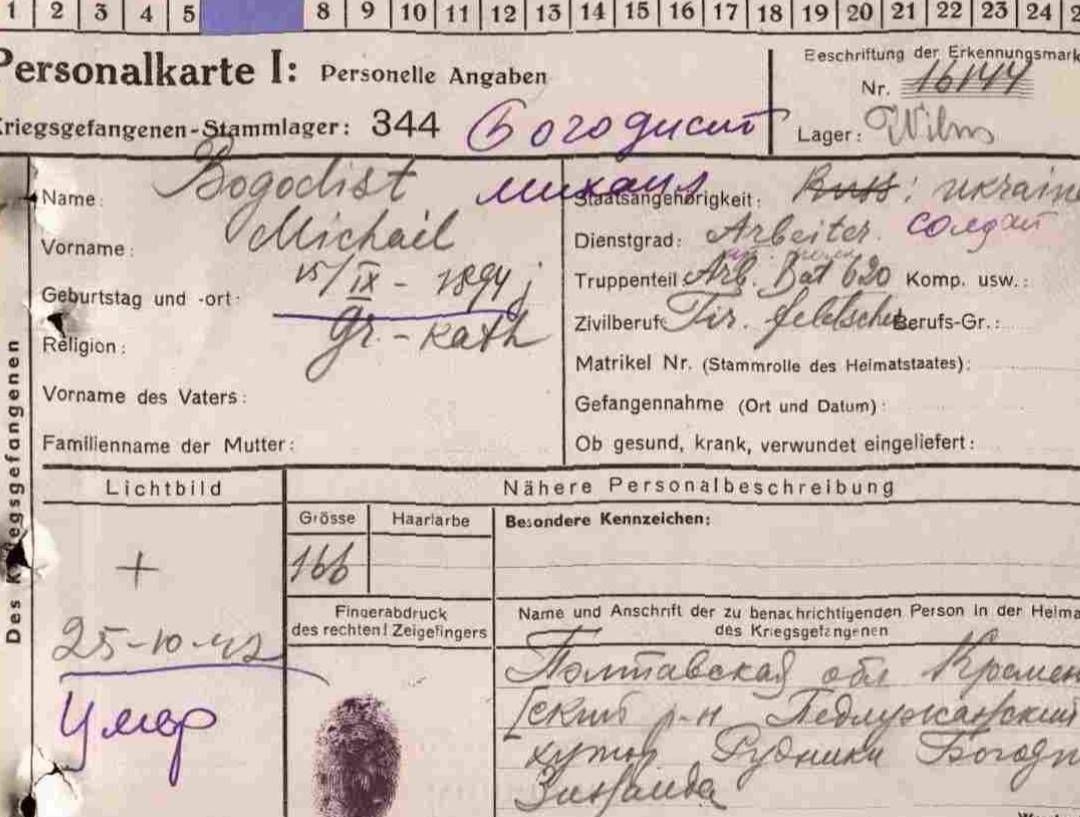 1 2 3 4 5 8 9 10 11 12 13 14 15 16 17 18 19 20 21 22 23 24 2
Personalkarte I: Personelle Angaben
Beschriftung der Erkennungsmark
Nr. 16144
Kriegsgefangenen-Stammlager: 344 Богодист
Lager: Wilna
Name: Bogodist михаил
Staatsangehörigkeit: Russ: ukraine
Vorname: Michail
Dienstgrad: Arbeiter. солдат
Geburtstag und -ort: 15/IX - 1894 j
Truppenteil Arb. Bat 620 Komp. usw.:
Religion: gr. - kath
Zivilberuf: Berufs-Gr.:
Matrikel Nr. (Stammrolle des Heimatstaates):
Vorname des Vaters:
Gefangennahme (Ort und Datum):
Familienname der Mutter:
Ob gesund, krank, verwundet eingeliefert:
Des Kriegsgefangenen
Lichtbild
Nähere Personalbeschreibung
Grösse Haarfarbe Besondere Kennzeichen:
166
+
25-10-42
умер
Fingerabdruck
des rechten! Zeigefingers
Name und Anschrift der zu benachrichtigenden Person in der Heima
des Kriegsgefangenen
Полтавская обл Кремен
ский р-н
хутор Рудники Богоди
Зинаида